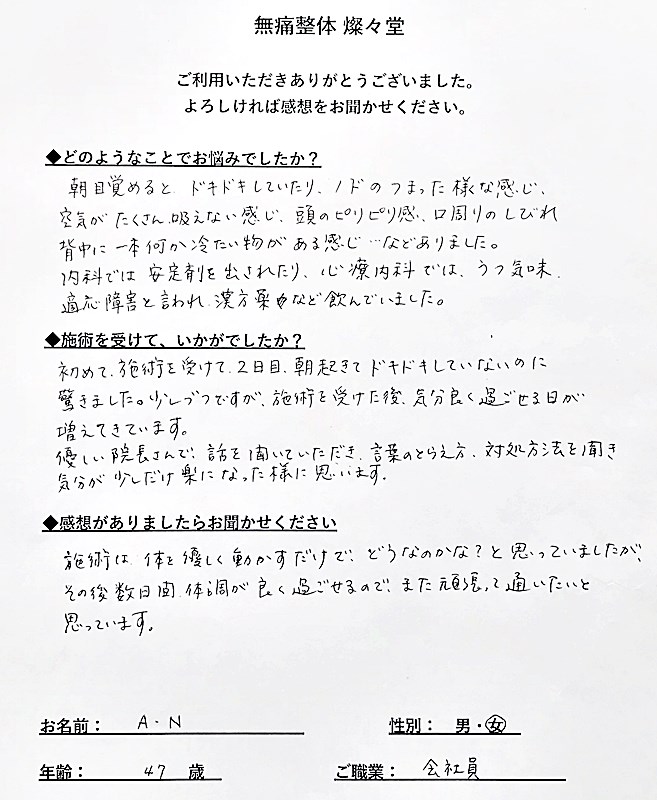 無痛整体 燦々堂
ご利用いただきありがとうございました。
よろしければ感想をお聞かせください。
◆どのようなことでお悩みでしたか？
朝目覚めると、ドキドキしていたり、ノドのつまった様な感じ、
空気がたくさん吸えない感じ、頭のピリピリ感、口周りのしびれ
背中に一本何か冷たい物がある感じ…などありました。
内科では安定剤を出されたり、心療内科では、うつ気味、
適応障害と言われ、漢方薬など飲んでいました。
◆施術を受けて、いかがでしたか？
初めて、施術を受けて、2日目、朝起きてドキドキしていないのに
驚きました。少しづつですが、施術を受けた後、気分良く過ごせる日が
増えてきています。
優しい院長さんで、話を聞いていただき、言葉のとらえ方、対処方法を聞き
気分が少しだけ楽になった様に思います。
◆感想がありましたらお聞かせください
施術は、体を優しく動かすだけで、どうなのかな？と思っていましたが、
その後数日間、体調が良く過ごせるので、また頑張って通いたいと
思っています。
お名前： A・N 性別： 男・女
年齢： 47 歳 ご職業： 会社員